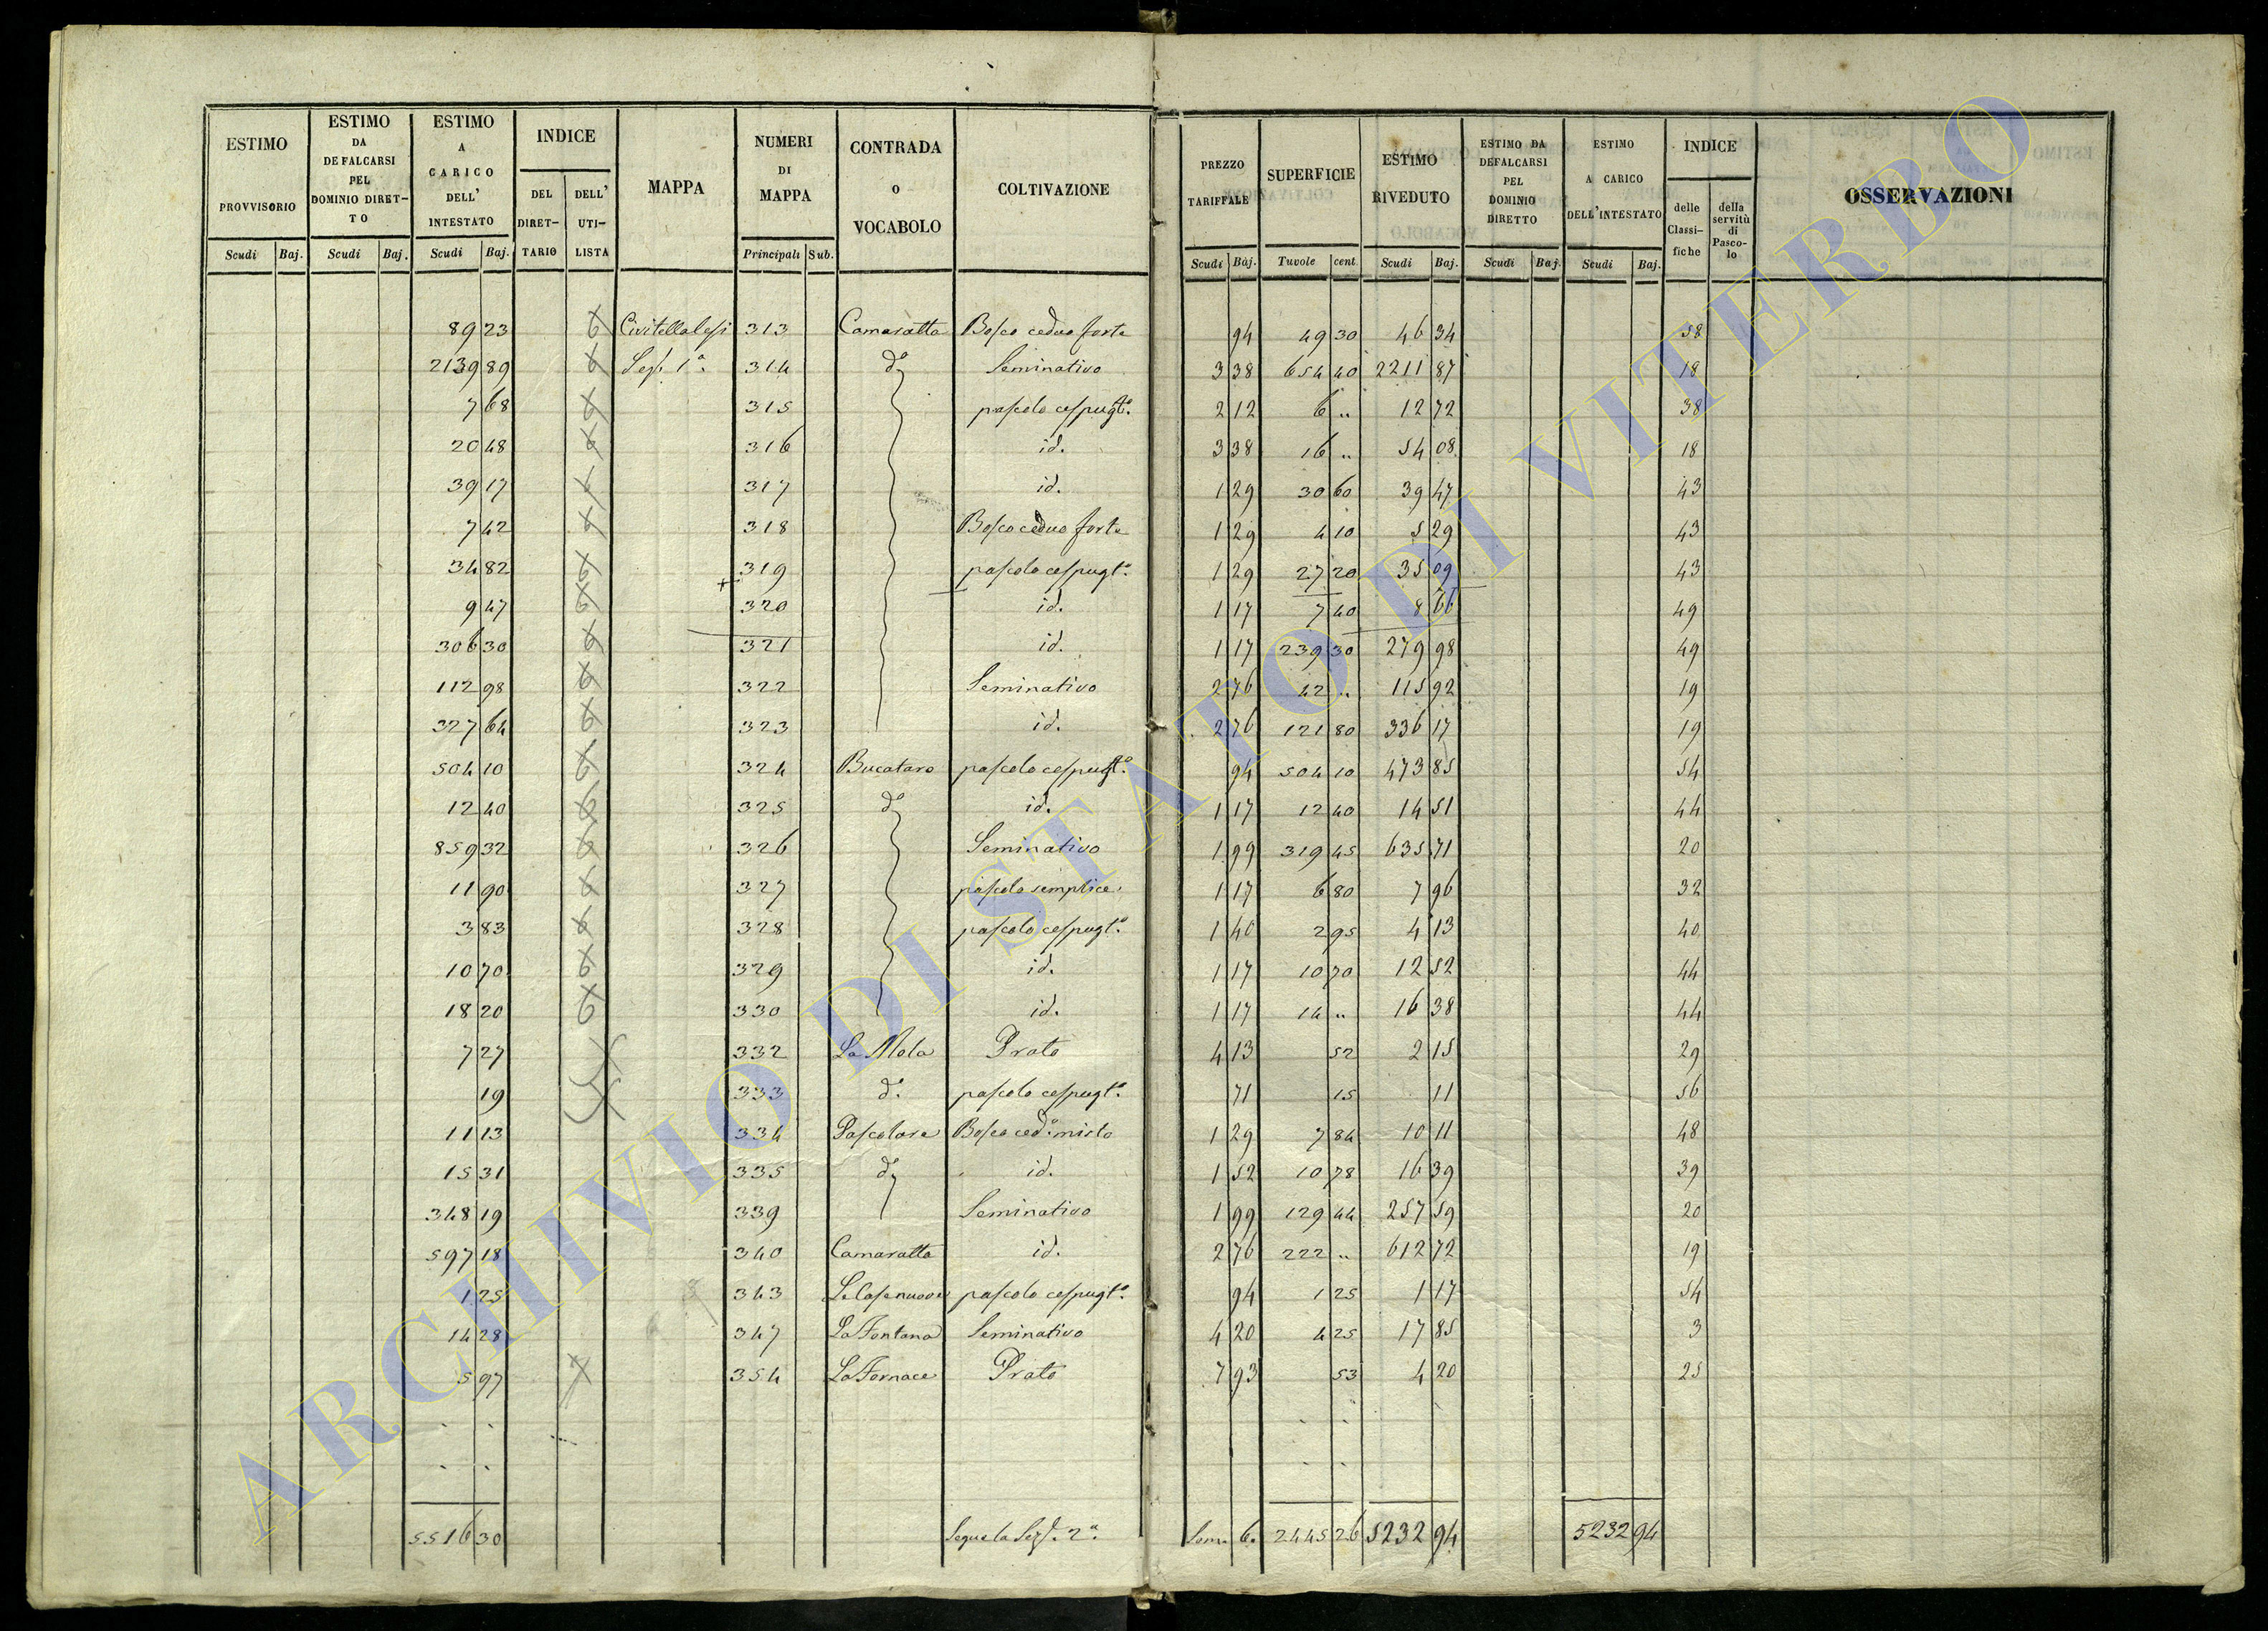 ESTIMO PROVVISORIO Scudi Baj.
ESTIMO DA DEFALCARSI PEL DOMINIO DIRETTO Scudi Baj.
ESTIMO A CARICO DELL' INTESTATO Scudi Baj.
INDICE DEL DIRETTARIO DELL' UTILISTA
MAPPA
NUMERI DI MAPPA Principali Sub.
CONTRADA O VOCABOLO
COLTIVAZIONE
PREZZO TARIFFALE Scudi Baj.
SUPERFICIE Tavole cent.
ESTIMO RIVEDUTO Scudi Baj.
ESTIMO DA DEFALCARSI PEL DOMINIO DIRETTO Scudi Baj.
ESTIMO A CARICO DELL'INTESTATO Scudi Baj.
INDICE delle Classifiche della servitù di Pascolo
OSSERVAZIONI
89 23 Civitellalesi 313 Camaratta Bosco ceduo forte 94 49 30 46 34 58
2139 89 Sez. 1ª 314 dº Seminativo 3 38 654 40 2211 87 18
7 68 315 pascolo cespugtº. 2 12 6 .. 12 72 38
20 48 316 id. 3 38 16 .. 54 08 18
39 17 317 id. 1 29 30 60 39 47 43
7 42 318 Bosco ceduo forte 1 29 4 10 5 29 43
34 82 319 pascolo cespugtº. 1 29 27 20 35 09 43
9 47 320 id. 1 17 7 40 8 66 49
306 30 321 id. 1 17 239 30 279 98 49
112 98 322 Seminativo 2 76 42 .. 115 92 19
327 64 323 id. 2 76 121 80 336 17 19
504 10 324 Bucataro pascolo cespugtº. 94 504 10 473 85 54
12 40 325 dº id. 1 17 12 40 14 51 44
859 32 326 Seminativo 1 99 319 45 635 71 20
11 90 327 pascolo semplice 1 17 6 80 7 96 32
3 83 328 pascolo cespugtº. 1 40 2 95 4 13 40
10 70 329 id. 1 17 10 70 12 52 44
18 20 330 id. 1 17 14 .. 16 38 44
7 27 332 La Mola Prato 4 13 52 2 15 29
19 333 dº. pascolo cespugtº. 71 15 11 56
11 13 334 Pascolare Bosco cedº. misto 1 29 7 84 10 11 48
15 31 335 dº id. 1 52 10 78 16 39 39
348 19 339 Seminativo 1 99 129 44 257 59 20
597 18 340 Camaratta id. 2 76 222 .. 612 72 19
1 25 343 Le Case nuove pascolo cespugtº. 94 1 25 1 17 54
14 28 347 La Fontana Seminativo 4 20 4 25 17 85 3
5 97 354 La Fornace Prato 7 93 53 4 20 25
5516 30 Segue la Sez. 2ª. Som. 6. 2445 26 5232 94 5232 94
ARCHIVIO DI STATO DI VITERBO